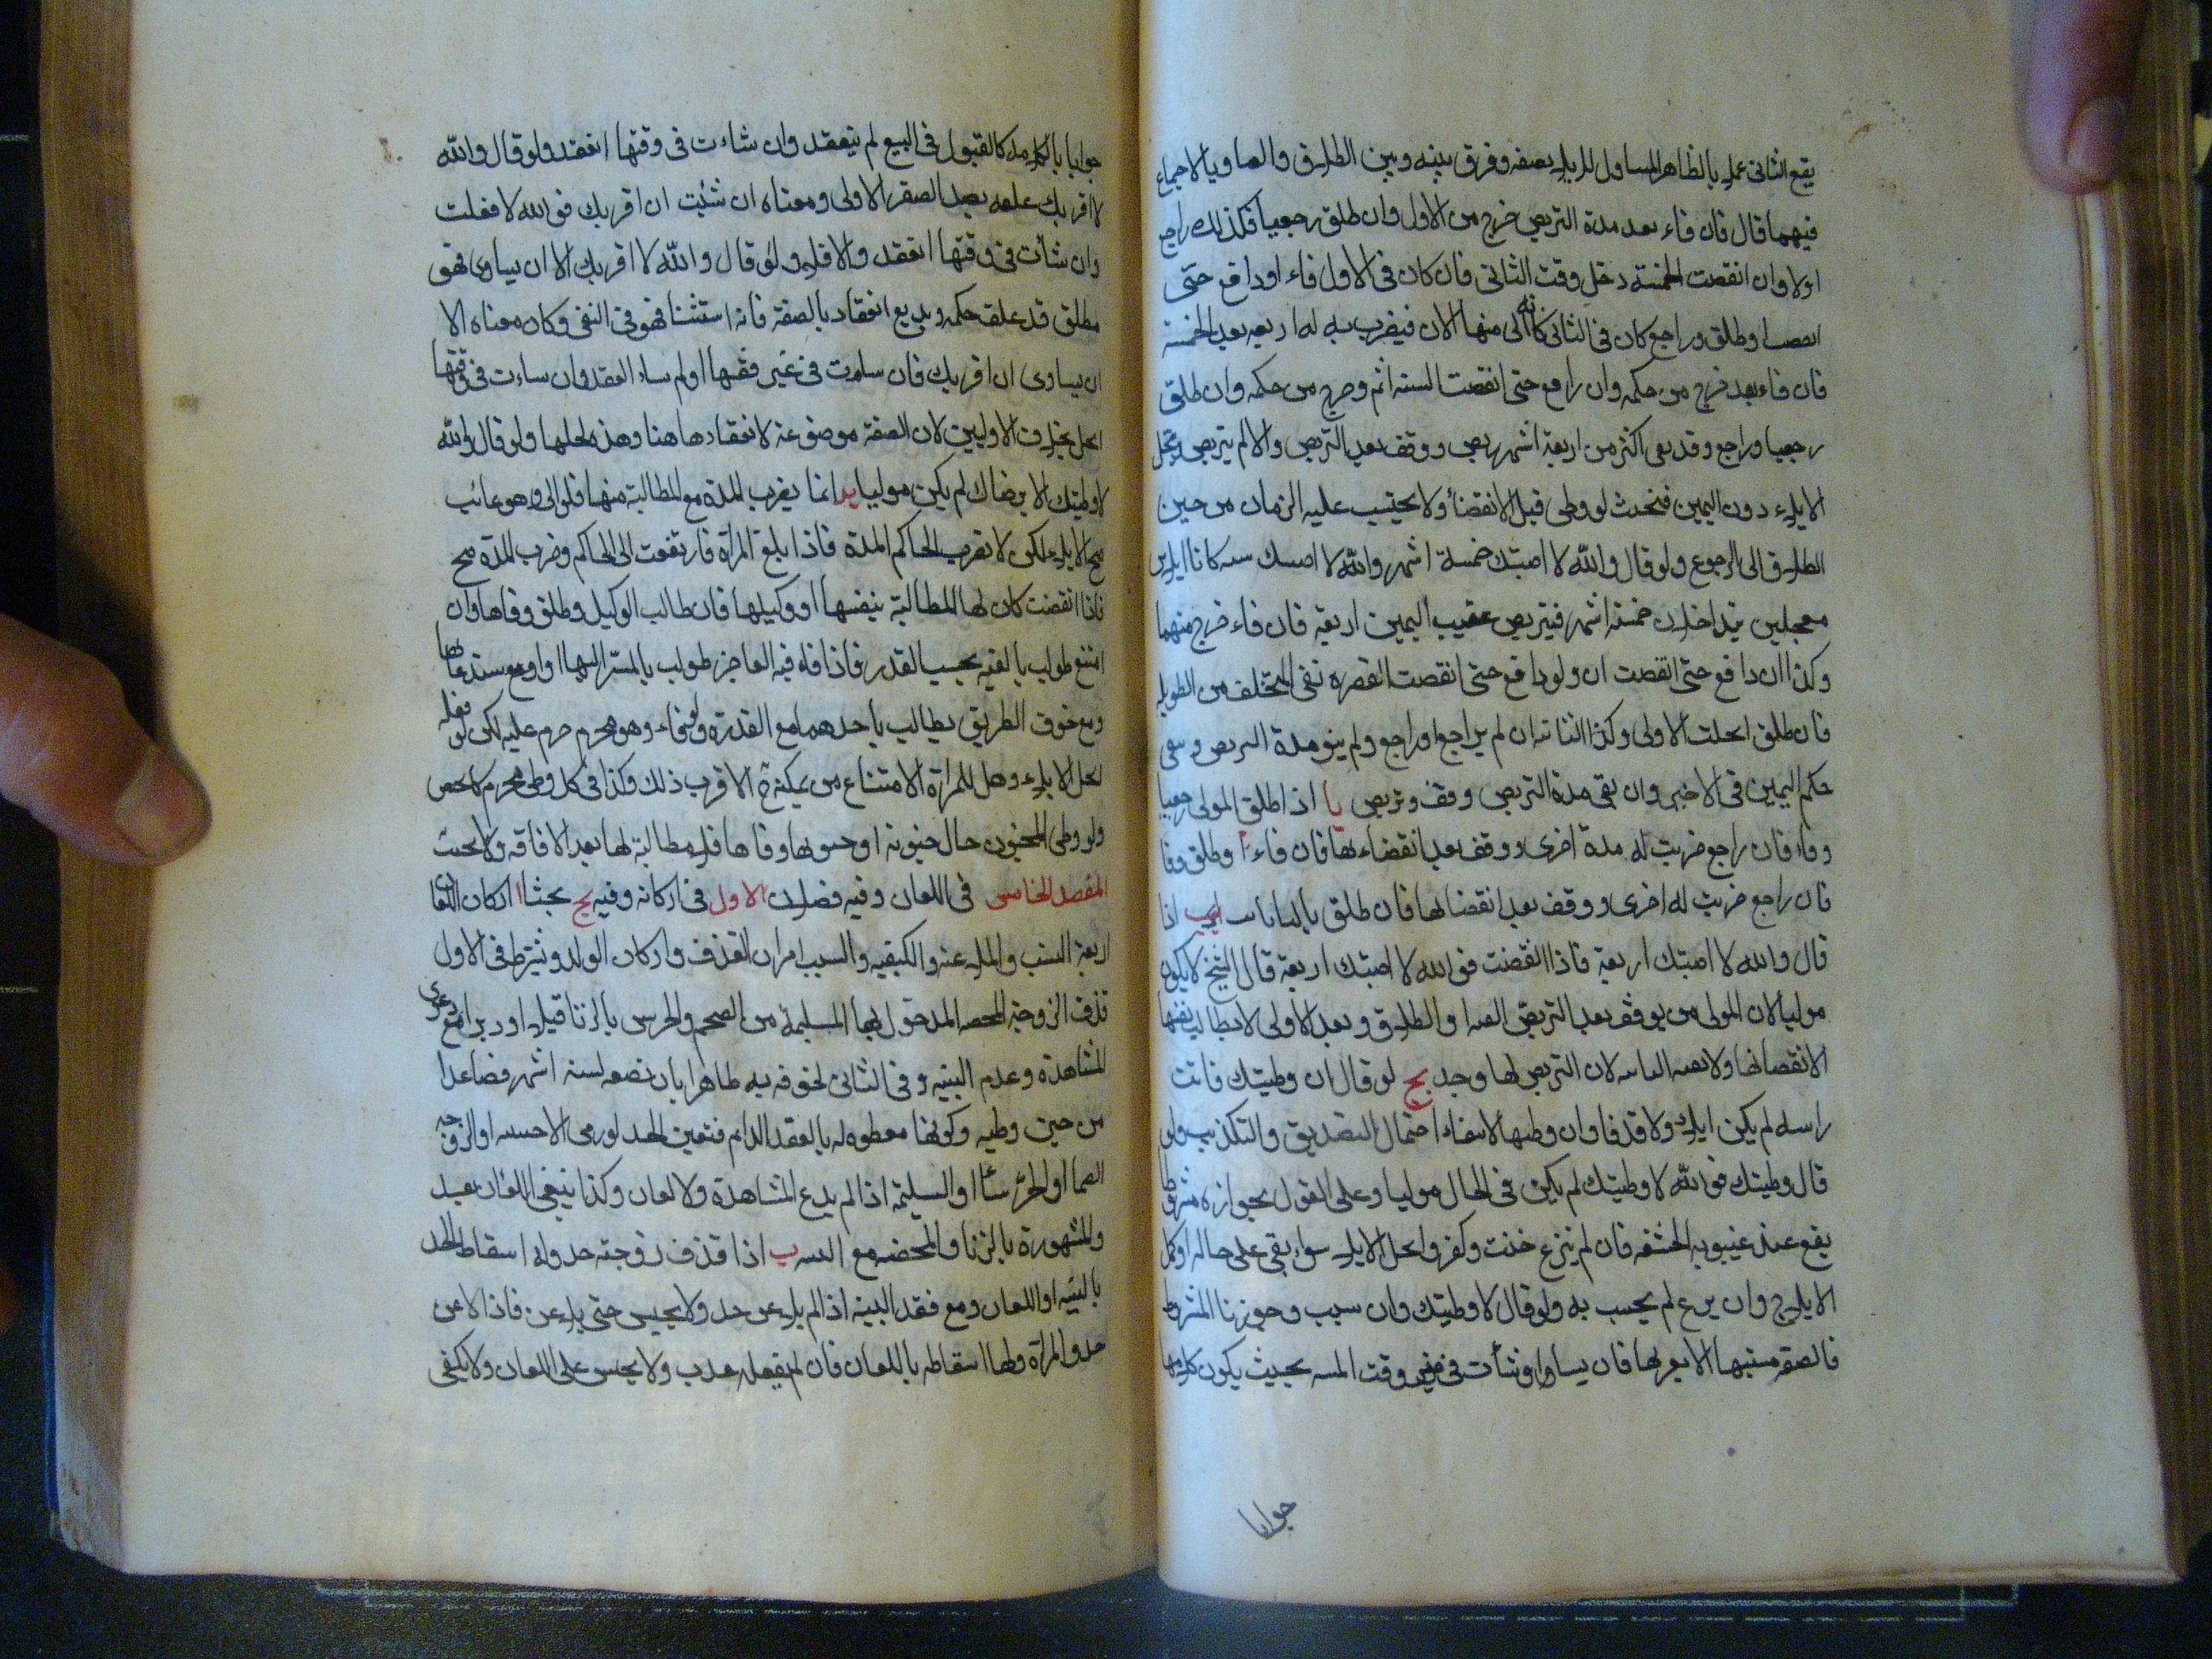 يقع الثانى عملا بالظاهر المساول للايلاء بصفه وفرق بينه وبين الطلاق والعاوبالاجماع
فيهما قال فان فاء بعد مدة التربص خرج من الاول وان طلق رجعيا فكذلك راجع
اولا وان انقضت الخمسة دخل وقت الثانى فان كان فى الاول فاء او دافع حتى
او طلق وراجع كان فى الثانى كانه الى منها الان فيضرب له اربعه بعد الخمسة
فان فاء بعد خرج من حكمه وان دافع حتى انقضت السنه اثم وخرج من حكمه وان طلق
رجعيا وراجع وقد بقى اكثر من اربعة اشهر تربص ووقف بعد التربص والا لم يتربص وينحل
الايلاء دون اليمين فيحنث لو وطى قبل الانقضاء ولا يحتسب عليه الزمان من حين
الطلاق الى الرجوع ولو قال والله لا اصبتك خمسة اشهر والله لا اصبتك سنه كانا ايلائين
معجلين يتداخلان خمسة اشهر فيتربص عقيب اليمين اربعة فان فاء خرج منهما
وكذا ان دافع حتى انقضت ان ولو دافع حتى انقضت القصيره نفى المتخلف من الطويله
فان طلق انحلت الاولى وكذا الثانيه ان لم يراجع او راجع ولم يبق مدة التربص وبقى
حكم اليمين فى الاخير وان بقى مدة التربص وقف وتربص يا اذا طلق المولى رجعيا
وفاء فان راجع ضربت له مدة اخرى ووقف بعد انقضاءها فان فاء او طلق وفا
فان راجع ضربت له اخرى ووقف بعد انقضائها فان طلق بانت يب اذا
قال والله لا اصبتك اربعة فاذا انقضت فوالله لا اصبتك اربعة قال الشيخ لا يكون
موليا لان المولى من يوقف بعد التربص او الطلاق وبعد الاولى لا يطالب بفيها
لانقضائها ولا لان التربص لها وجد يج لو قال ان وطيتك فانت
زانيه لم يكن ايلاء ولا قذفا وان وطيها لانتفاء احتمال التصديق والتكذيب ولو
قال وطيتك فوالله لا وطيتك لم يكن فى الحال موليا وعلى القول بجوازه مشروطا
يقع عند غيبوبة الحشفه فان لم ينزع حنث وكفر وانحل الايلاء سواء بقى على حاله او كمل
الايلاج وان نزع لم يحسب به ولو قال لا وطيتك وان شئت وجوزنا المشروط
فالصفه مشيتها لا يقربها فان وشأت فى غير وقت بحيث يكون كلامها
جوابا
جوابا بالكلامه كالقبول فى البيع لم ينعقد وان شاءت فى وقتها انعقد ولو قال والله
لا اقربك علمه بعيد الصفه الاولى ومعناه ان شئت ان اقربك فوالله لا فعلت
وان شأت فى وقتها انعقد والا فلا ولو قال والله لا اقربك الا ان تشاوى فهو
مطلق قد علق حكمه وبديع انعقاد بالصفه فانه استثنا فهو فى النفى وكان معناه الا
ان تشاوى ان اقربك فان شاءت فى غير وقتها او لم تشاء انعقد وان شاءت فى وقتها
انحل بخلاف الاوليين لان الصفه موضوعة لانعقادها هنا وهذه لحلها ولو قال والله
لا وطيتك الا برضاك لم يكن موليا يد انما يضرب المدة مع المطالبة منها فلو الى وهو غائب
صح الايلاء لكن لا يضرب الحاكم المدة فاذا بلغ المراة فارتفعت الى الحاكم وضرب المدة صح
فاذا انقضت كان لها المطالبة بنفسها او وكيلها فان طالب الوكيل وطلق وفاها وان
امتنع طولب بالفيئه بحسب القدر فاذا فاء فيه العاجز طولب بالمسير اليها او استدعائها
ومع خوف الطريق يطالب باحدهما مع القدرة ولو فاء وهو محرم حرم عليه لكن لو فعله
انحل الايلاء وهل للمراة الامتناع من تمكينه ح الاقرب ذلك وكذا فى كل وطى محرم كالحيض
ولو وطى المجنون حال جنونه او جنونها وفاها فلا مطالبة لها بعد الافاقه ولا يحنث
المقصد الخامس فى اللعان وفيه فصلان الاول فى اركانه وفيه يج بحثا ا اركان اللعان
اربعة السبب والملاعنه والكيفيه والسبب امران القذف وانكار الولد ويشترط فى الاول
قذف الزوجة المحصنه المدخول بها السليمة من الصمم والخرس بالزنا قبلا او دبرا مع دعوى
المشاهدة وعدم البينه وفى الثانى لحوقه به ظاهرا بان تضعه لستة اشهر فصاعدا
من حين وطيه وكونها موطوءه له بالعقد الدايم فتعين الحد لو رمى الاجنبيه او الزوجه
الصما او الخرساء او السليمه اذا لم يدع المشاهدة ولا لعان وكذا ينفى اللعان بعيد
والمشهورة بالزنا والمحصنه مع ب اذا قذف زوجته حد وله اسقاط الحد
بالبينه او اللعان ومع فقد البينه اذا لم يلاعن حد ولا يحبس حتى يلاعن فاذا لاعن
حد والمراة ولها اسقاطه باللعان فان لم يفعله عذب ولا يحبس على اللعان ولا يكفى